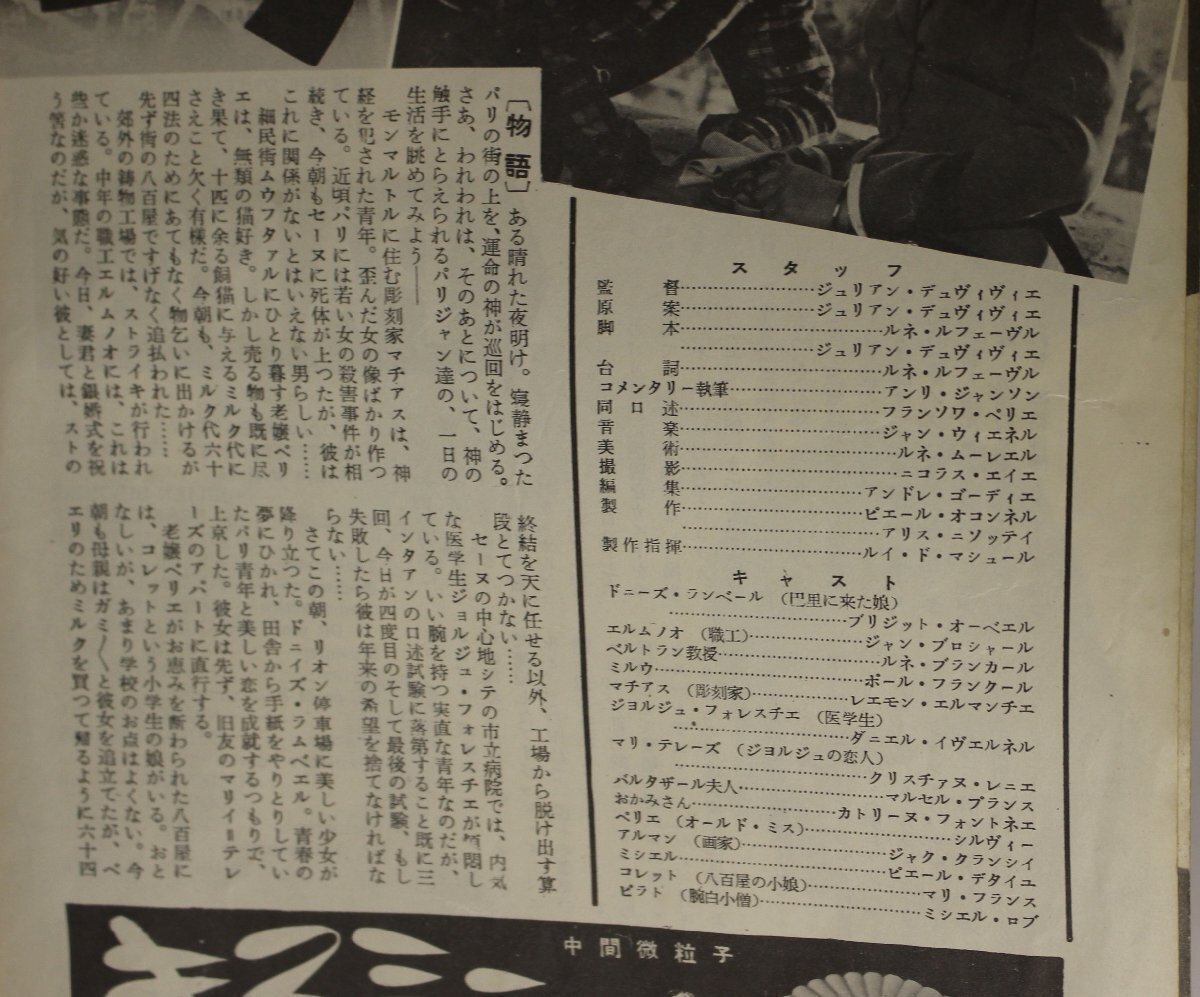 スタッフ
監督……………ジュリアン・デュヴィヴィエ
原案……………ジュリアン・デュヴィヴィエ
脚本……………ルネ・ルフェーヴル
……………ジュリアン・デュヴィヴィエ
台詞……………ルネ・ルフェーヴル
コメンタリー執筆……………アンリ・ジャンソン
同口述……………フランソワ・ペリエ
音楽……………ジャン・ウィエネル
美術……………ルネ・ムーレエル
撮影……………ニコラス・エイエ
編集……………アンドレ・ゴーディエ
製作……………ピエール・オコンネル
……………アリス・ニソッテイ
製作指揮……………ルイ・ド・マシュール
キャスト
ドニーズ・ランベール(巴里に来た娘)
……………ブリジット・オーベエル
エルムノオ(職工)……………ジャン・ブロシャール
ベルトラン教授……………ルネ・ブランカール
ミルウ……………ポール・フランクール
マチアス(彫刻家)……………レエモン・エルマンチエ
ジョルジュ・フォレスチエ(医学生)
……………ダニエル・イヴェルネル
マリ・テレーズ(ジョルジュの恋人)
……………クリスチァヌ・レニエ
バルタザール夫人……………マルセル・プランス
おかみさん……………カトリーヌ・フォントネエ
ペリエ(オールド・ミス)……………シルヴィー
アルマン(画家)……………ジャク・クランシイ
ミシエル……………ピエール・デタイユ
コレット(八百屋の小娘)……………マリ・フランス
ピラト(腕白小僧)……………ミシエル・ロブ
〔物語〕ある晴れた夜明け。寝静まつた
パリの街の上を、運命の神が巡回をはじめる。
さあ、われわれは、そのあとについて、神の
触手にとらえられるパリジャン達の、一日の
生活を眺めてみよう――
モンマルトルに住む彫刻家マチアスは、神
経を犯された青年。歪んだ女の像ばかり作つ
ている。近頃パリには若い女の殺害事件が相
続き、今朝もセーヌに死体が上つたが、彼は
これに関係がないとはいえない男らしい……
細民街ムウフタァルにひとり暮す老嬢ペリ
エは、無類の猫好き。しかし売る物も既に尽
き果て、十匹に余る飼猫に与えるミルク代に
さえこと欠く有様だ。今朝も、ミルク代六十
四法のためにあてもなく物乞いに出かけるが
先ず街の八百屋ですげなく追払われた……
郊外の鋳物工場では、ストライキが行われ
ている。中年の職工エルムノオには、これは
些か迷惑な事態だ。今日、妻君と銀婚式を祝
う筈なのだが、気の好い彼としては、ストの
終結を天に任せる以外、工場から脱け出す算
段とてつかない……
セーヌの中心地シテの市立病院では、内気
な医学生ジョルジュ・フォレスチエが煩悶し
ている。いい腕を持つ実直な青年なのだが、
インタアンの口述試験に落第すること既に三
回、今日が四度目のそして最後の試験、もし
失敗したら彼は年来の希望を捨てなければな
らない……
さてこの朝、リオン停車場に美しい少女が
降り立つた。ドニイズ・ラムベエル。青春の
夢にひかれ、田舎から手紙をやりとりしてい
たパリ青年と美しい恋を成就するつもりで、
上京した。彼女は先ず、旧友のマリイ=テレ
ーズのアパートに直行する。
老嬢ペリエがお恵みを断わられた八百屋に
は、コレットという小学生の娘がいる。おと
なしいが、あまり学校のお点はよくない。今
朝も母親はガミ〱と彼女を追立てたが、ペ
エリのためミルクを買つて帰るように六十四
中間微粒子